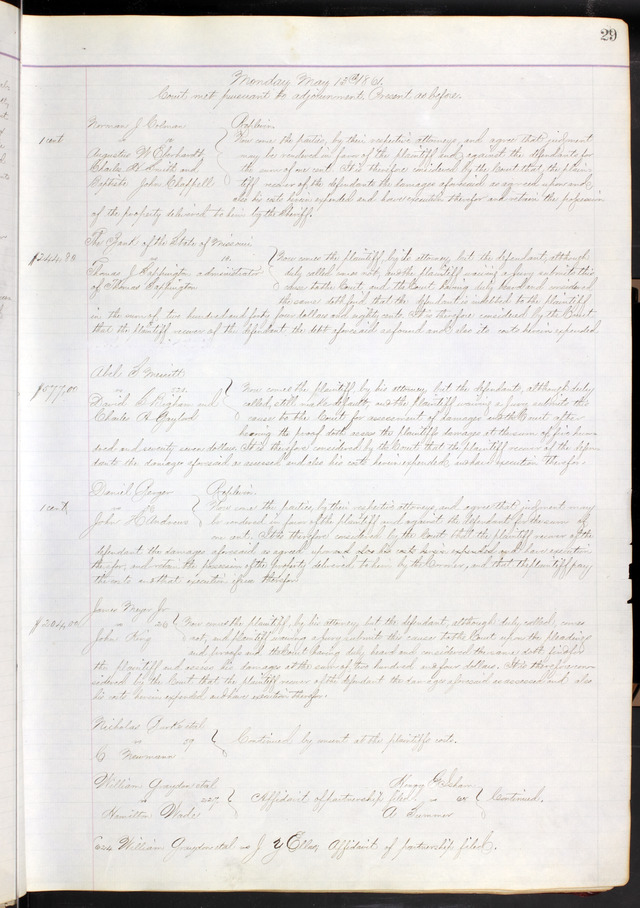 29
Monday May 13th 1861.
Court met pursuant to adjournment. Present as before.
Norman J. Colman
Replevin.
1 cent
Now come the parties, by their respective attorneys, and agree that judgment
Augustus W Eberhardt,
may be rendered in favor of the plaintiff and against the defendants for
Charles H. Smith and
the sum of one cent. It is therefore considered by the Court that the plain-
John Chappell
tiff recover of the defendants the damages aforesaid as agreed upon and
also his costs herein expended and have execution therefor and retain the possession
of the property delivered to him by the Sheriff.
The Bank of the State of Missouri
$244.80
vs
Now comes the plaintiff, by its attorney, but the defendant, although
Thomas J. Sappington administrator
duly called comes not, and the plaintiff waiving a jury submits this
of Thomas Sappington
cause to the Court, and the Court having duly heard and considered
the same doth find that the defendant is indebted to the plaintiff
in the sum of two hundred and forty four dollars and eighty cents. It is therefore considered by the Court
that the plaintiff recover of the defendant the debt aforesaid as found and also its costs herein expended
Merritt
$577.00
Now comes the plaintiff, by his attorney, but the defendants, although duly
and
called, still make default, and the plaintiff waiving a jury submits the
Charles R. Gaylord
causes to the Court for assessment of damages and the Court after
hearing the proof doth assess the plaintiffs damages at the sum of five hun-
dred and seventy seven dollars. It is therefore considered by the Court that the plaintiff recover of the defen-
dants the damages aforesaid as assessed and also his costs herein expended, and have execution therefor.
Daniel
Replevin.
1 cent
Now come the parties, by their respective attorneys, and agree that judgment may
John H Andrews
be rendered in favor of the plaintiff and against the defendant for the sum of
one cent. It is therefore considered by the Court that the plaintiff recover of the
defendant the damages aforesaid as agreed upon and also his costs herein expended and have execution
therefor, and retain the possession of the property delivered to him by the Coroner, and that the plaintiff pay
the costs and that execution issue therefor.
James Jr
$204.00
Now comes the plaintiff, by his attorney, but the defendant, although duly called, comes
John King
not, and plaintiff waiving a jury submits this cause to the Court upon the pleadings
and proofs and the Court having duly heard and considered the same doth find for
the plaintiff and assess his damages at the sum of two hundred and four dollars. It is therefore con-
sidered by the Court that the plaintiff recover of the defendant the damages aforesaid as assessed and also
his costs herein expended and have execution therefor.
Nicholas et al
Continued by consent at the plaintiffs costs.
C Newmann
William Graydon et al
Henry G. Isham
vs 227
Affidavit of partnership filed.
Continued.
Hamilton Wade
A Sumner
624 William Graydon et al vs J Y Ellis, Affidavit of partnership filed.